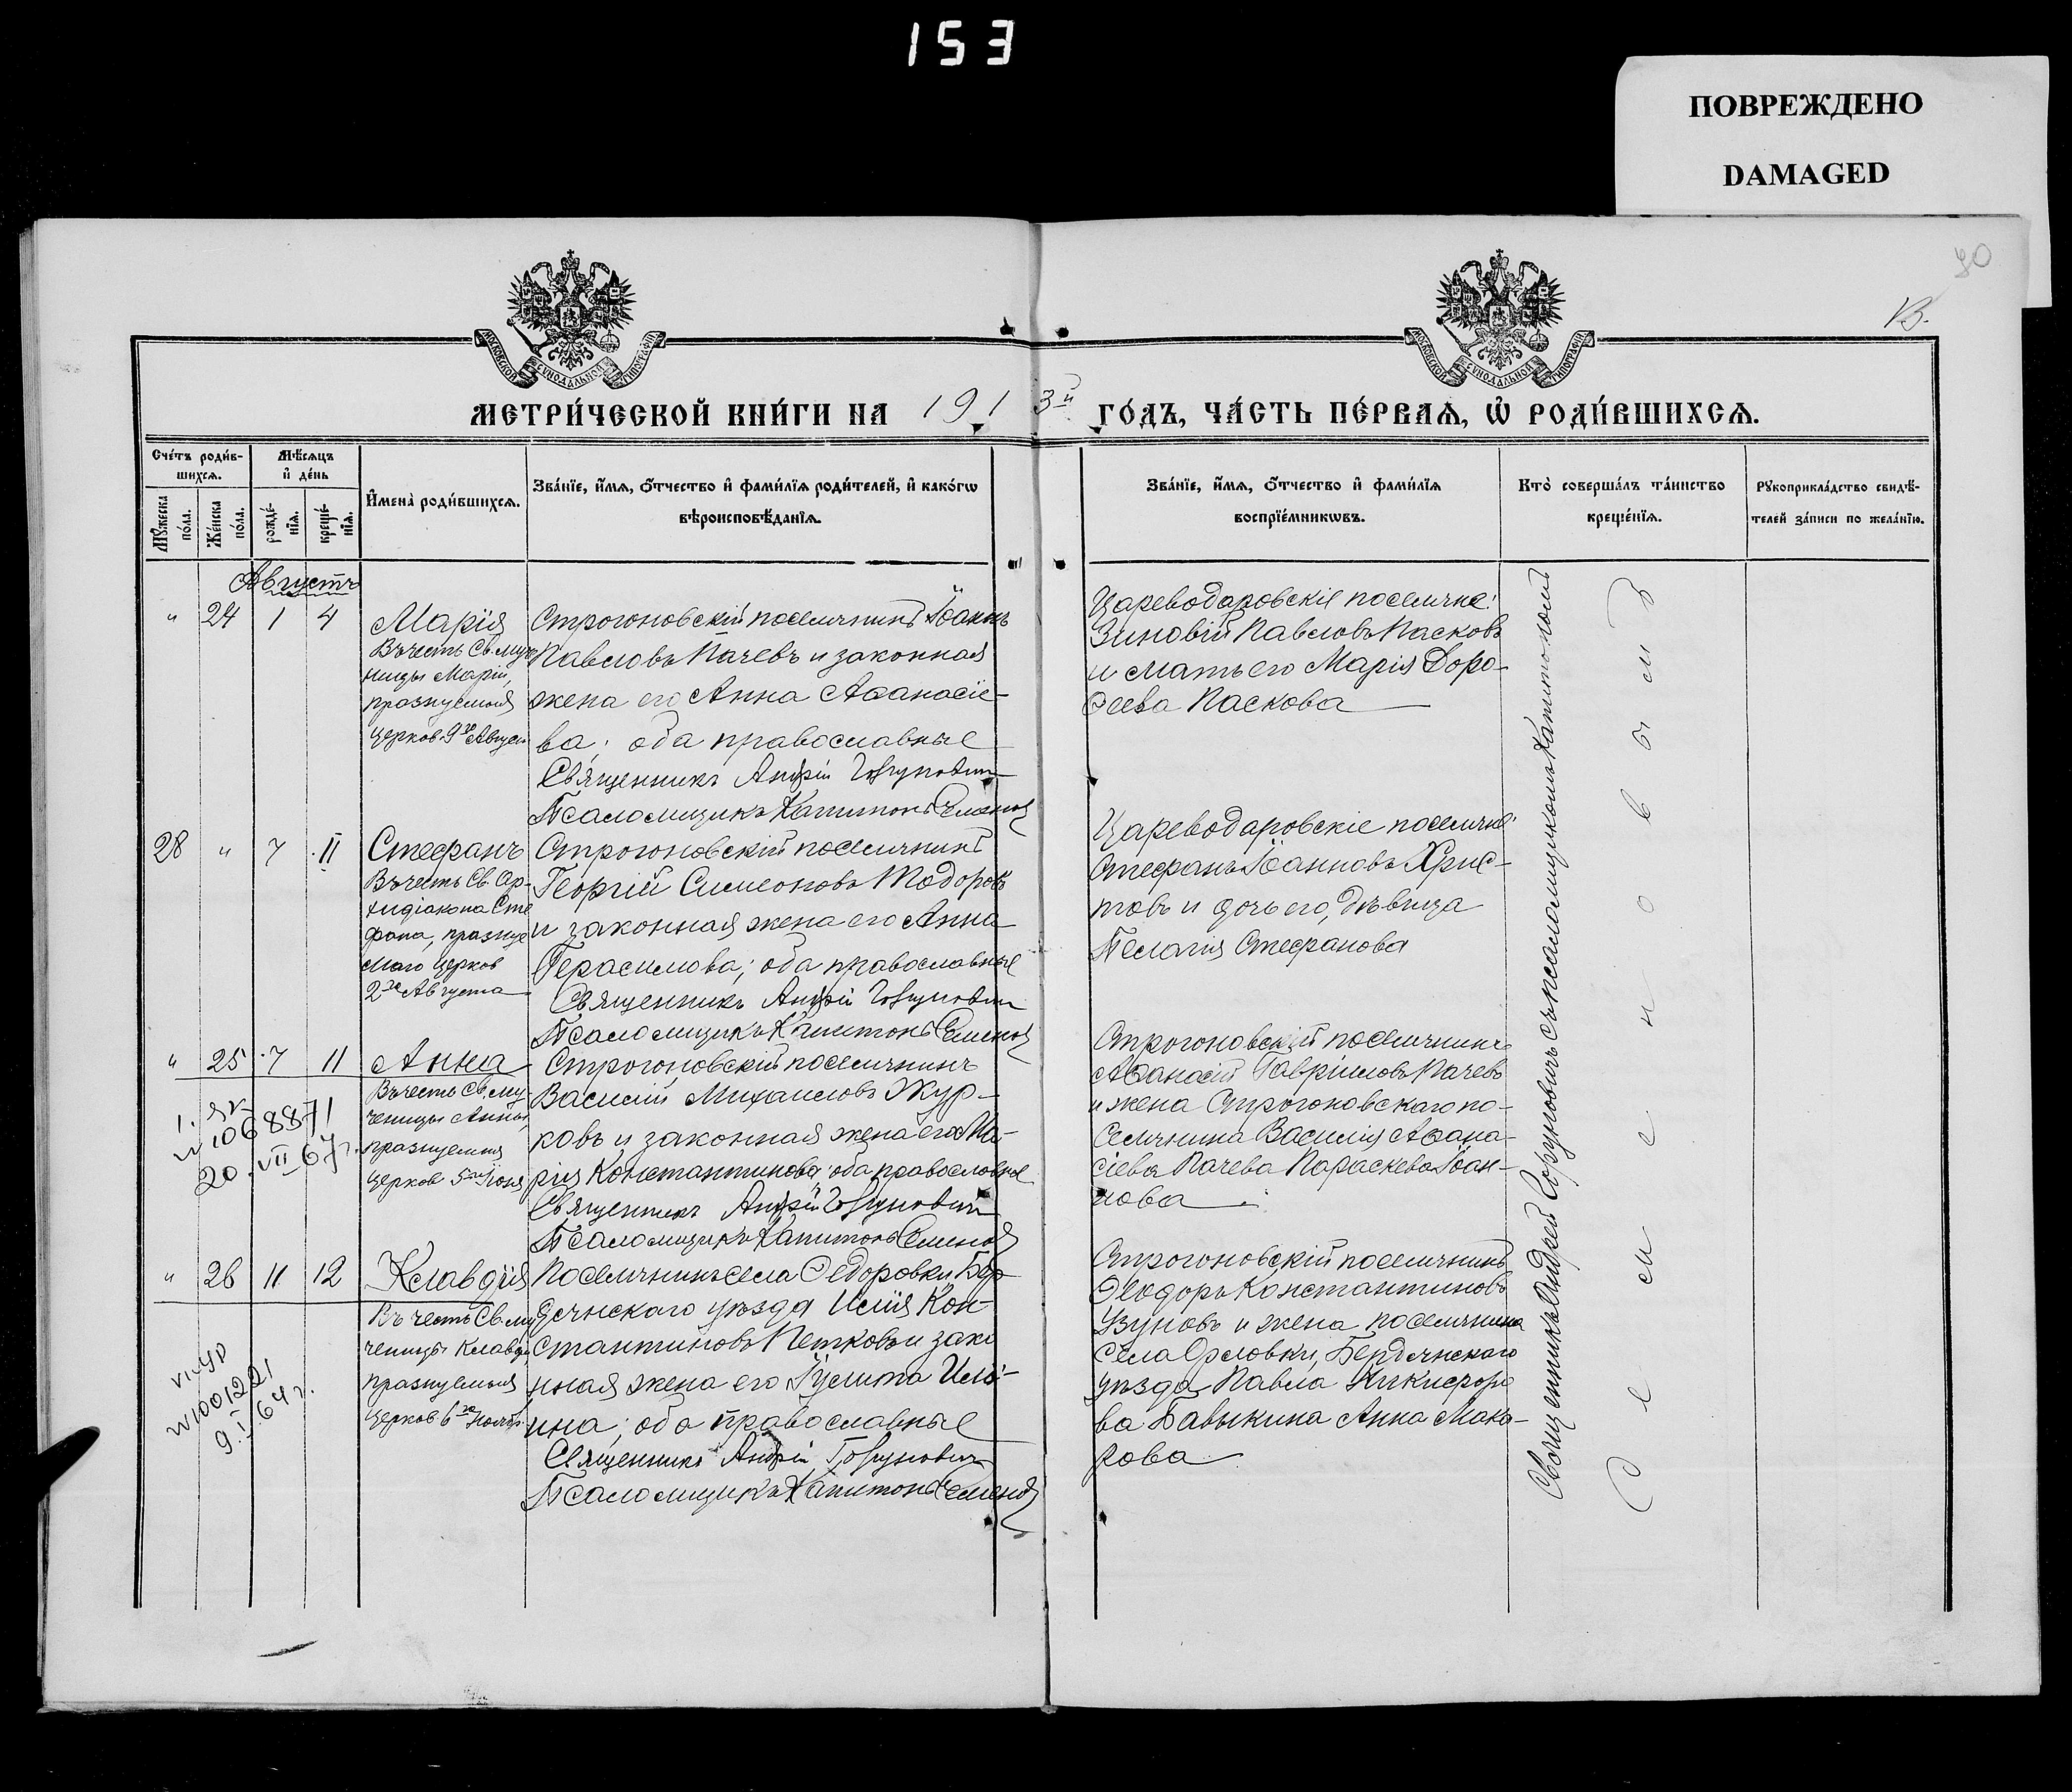 153
ПОВРЕЖДЕНО
DAMAGED
90
МОСКОВСКОЙ СѴНОДАЛЬНОЙ ТИПОГРАФІИ
МОСКОВСКОЙ СѴНОДАЛЬНОЙ ТИПОГРАФІИ
МЕТРИ́ЧЕСКОЙ КНИ́ГИ НА 1913й ГО́ДЪ, ЧА́СТЬ ПЕ́РВАѦ, Ѡ҆ РОДИ́ВШИХСѦ.
Сче́тъ роди́в-
шихсѧ.
Мѣ́сѧцъ
и҆ де́нь
Мꙋ́жеска
по́ла.
Же́нска
по́ла.
рожде́-
нїѧ.
креще́-
нїѧ.
И҆мена̀ роди́вшихсѧ.
Зва́нїе, и҆́мѧ, ѻ҆́тчество и҆ фами́лїѧ роди́телей, и҆ како́гѡ
вѣроисповѣ́данїѧ.
Зва́нїе, и҆́мѧ, ѻ҆́тчество и҆ фами́лїѧ
воспрїе́мникѡвъ.
Кто̀ соверша́лъ та́инство
креще́нїѧ.
Рꙋкоприкла́дство свидѣ́-
телей за́писи по жела́нїю.
Августъ
" 24 1 4
Марія
Въ честь Св. муче
ницы Маріи,
празнуемыя
церков. 9го Август
Строгоновскій поселянинъ Іоаннъ
Павловъ Пачевъ и законная
жена его Анна Аѳанасіе-
ва; оба православные
Священникъ Андрей Горунович
Псаломщикъ Капитонъ Семенов
Цареводаровскіе поселяне:
Зиновій Павловъ Пасковъ
и мать его Марія Доро-
ѳеева Паскова
28 " 7 11
Стефанъ
Въ честь Св. Ар-
хидіакона Сте
фана, празнуе
маго церков
2го Августа
Строгоновскій поселянинъ
Георгій Симеоновъ Тодоровъ
и законная жена его Анна
Герасимова; оба православные
Священникъ Андрей Горунович
Псаломщикъ Капитонъ Семенов
Цареводаровскіе поселяне:
Стефанъ Іоанновъ Хрис-
товъ и дочь его, дѣвица
Пелагія Стефанова
" 25 7 11
Анна
Въ честь Св. му
ченицы Анны,
празнуемыя
церков 5го Іюня
1. ЯР
N 1068871
20.VII 67г.
Строгоновскій поселянинъ
Василій Михаиловъ Жур-
ковъ и законная жена его Ма-
рія Константинова; оба православные
Священникъ Андрей Горунович
Псаломщикъ Капитонъ Семенов
Строгоновскій поселянинъ
Аѳанасій Гавріиловъ Пачевъ
и жена Строгоновскаго по-
селянина Василія Аѳана-
сіева Пачева Параскева Іоан-
нова
" 26 11 12
Клавдія
Въ честь Св. му
ченицы Клавди
празнуемыя
церков 6го Ноябр
N 1001221
9.I.64 г.
Поселянинъ села Ѳедоровки Бер
дянскаго уѣзда Илія Кон-
стантиновъ Петковъ и зако
нная жена его Іулита Ильи-
ина; оба православные
Священникъ Андрей Горунович
Псаломщикъ Капитонъ Семенов
Строгоновскій поселянинъ
Ѳеодоръ Константиновъ
Узуновъ и жена поселянина
села Орловки, Бердянскаго
уѣзда Павла Никифоро
ва Бабыкина Анна Мака-
рова
Священникъ Андрей Горуновичъ съ псаломщикомъ Капитономъ
Семеновымъ